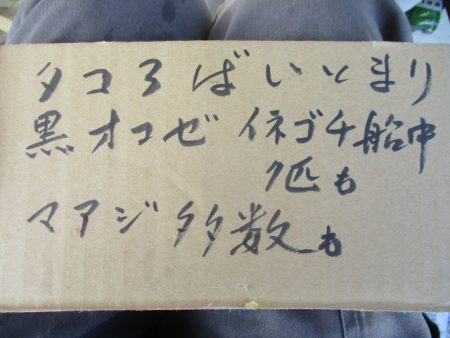 タコ3ばいとまり
黒オコゼ イネゴチ船中
7匹も
マアジ多数も